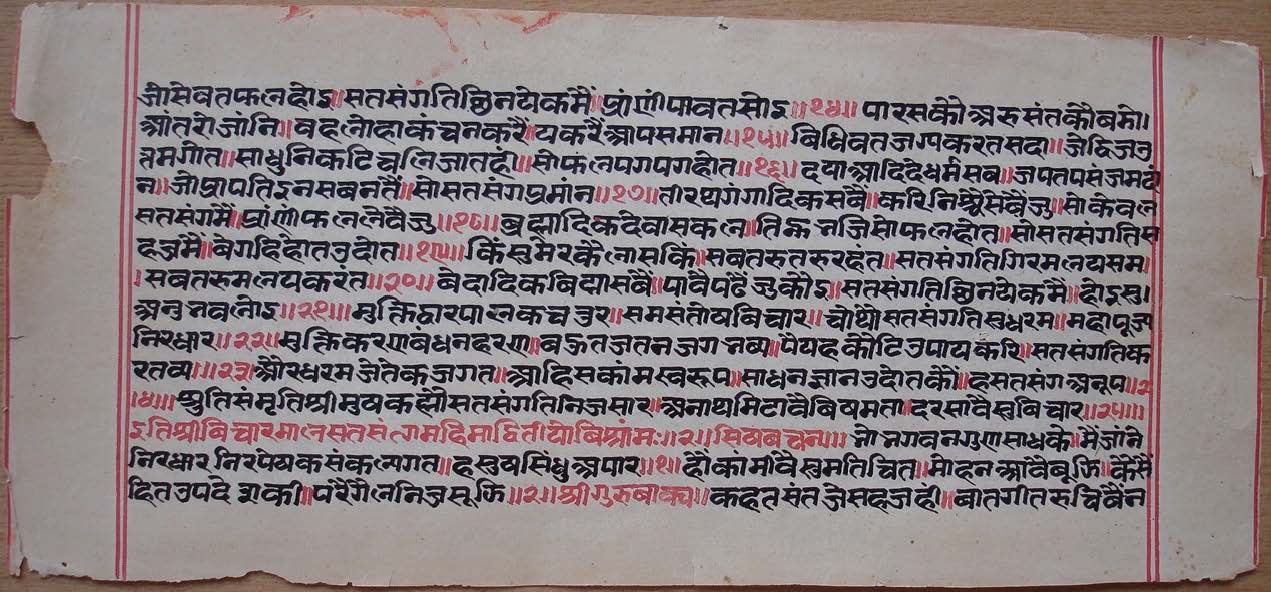 जो सेवत फल होइ॥ सत संगति छिन येक मैं॥ प्रांणी पावत सोइ॥१४॥ पारस कौ अरु संत कौ बडो।
आंतरो जांनि॥ वह लोहा कंचन करै॥ यह करै आप समान॥१५॥ बिधिवत जग्य करत सदा॥ जे द्विज उ
त्तम गीत॥ साधु निकटि चलि जात हीं॥ सो फल पग पग होत॥१६॥ दया आदि दे धर्म सब॥ जप तप संजम दां
न॥ जो प्रापति इन सबन तैं॥ सो सत संग प्रमांन॥१७॥ तीरथ गंगादिक सबै॥ करि निश्चै सेवै जु॥ सो केवल
सत संग मैं॥ प्रांणी फल लेवै जु॥१८॥ ब्रह्मादिक देवा सकल॥ तिह्न भजि सो फल होत॥ सो सत संगति स
हज मैं॥ बेगहि होत उदोत॥१९॥ किं सुमेर कैलास किं॥ सब तरु तरु रहंत॥ सत संगति गिर मलय सम।
। सब तरु मलय करंत॥२०॥ बेदादिक बिद्या सबै॥ पावै पढै जु कोइ॥ सत संगति छिन येक मै॥ होइ सु।
अनुभव लोइ॥२१॥ मुक्ति द्वारपालक चतुर॥ सम संतोष बिचार॥ चोथो सत संगति सु धरम॥ महा पूज्य
निरधार॥२२॥ मुक्ति करण बंधन हरण॥ बहुत जतन जग भव्य॥ पै यह कोटि उपाय करि॥ सत संगति क
रतव्य॥२३॥ और धरम जेतेक जगत॥ आहि सकांम स्वरूप॥ साधन ज्ञान उदोत कौ॥ ह सत संग अनूप॥२
॥४॥ श्रुति संमृति श्रीमुष कह्यौ सत संगति निज सार॥ अनाथ मिटावै बिषमता॥ दरसावै सु बिचार॥२५॥
इति श्री बिचारमाल सतसंत्गमहिमा द्वितीयो बिश्रांमः॥२॥ सिष्य बचन्य॥ भो भगवन गुण साध के॥ मैं जांने
निरधार निरपेष्य क संकल्प गत॥ ह सुष सिंधु अपार॥१॥ हौं कांमी वै सुमति चित॥ मो हन आवै बूझि॥ कैसें
हित उपदेश की॥ परै गैल निज सूझि॥२॥ श्री गुरु बाक्य॥ कहत संत जे सहज ही॥ बात गीत रुचि बैंन